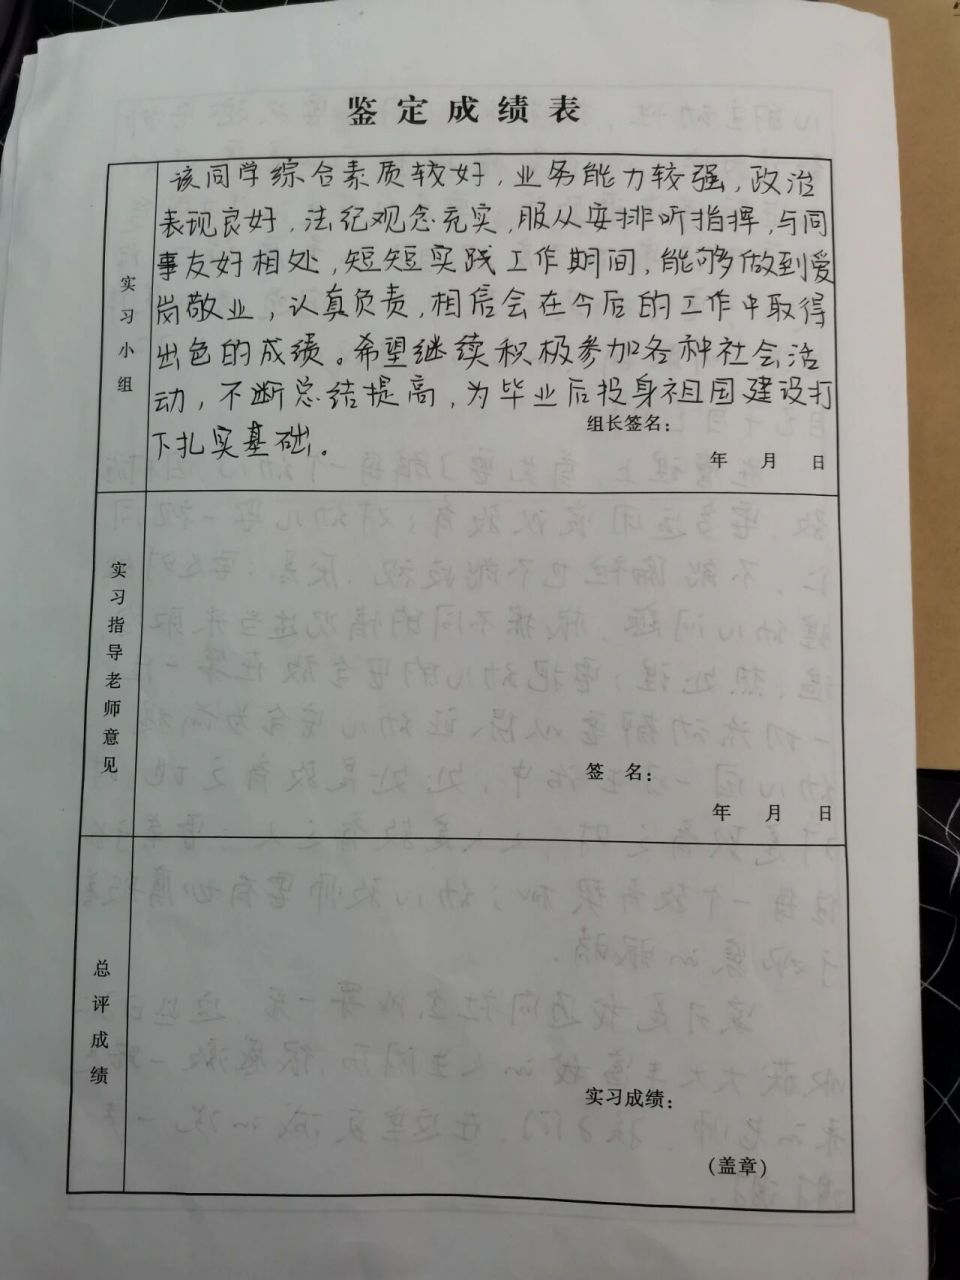 鉴定成绩表
实习小组
该同学综合素质较好，业务能力较强，政治
表现良好，法纪观念充实，服从安排听指挥，与同
事友好相处，短短实践工作期间，能够做到爱
岗敬业，认真负责，相信会在今后的工作中取得
出色的成绩。希望继续积极参加各种社会活
动，不断总结提高，为毕业后投身祖国建设打
下扎实基础。
组长签名：
年 月 日
实习指导老师意见
签 名：
年 月 日
总评成绩
实习成绩：
（盖章）